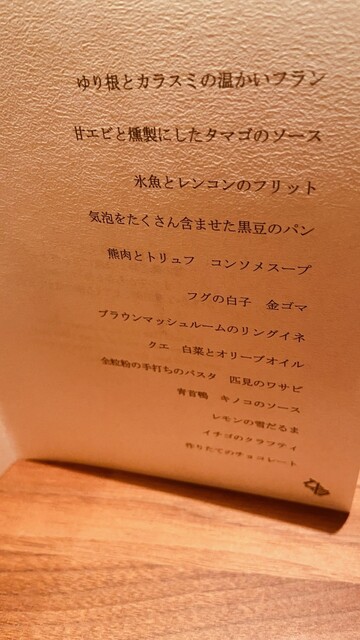 ゆり根とカラスミの温かいフラン
甘エビと燻製にしたタマゴのソース
氷魚とレンコンのフリット
気泡をたくさん含ませた黒豆のパン
熊肉とトリュフ　コンソメスープ
フグの白子　金ゴマ
ブラウンマッシュルームのリングイネ
クエ　白菜とオリーブオイル
全粒粉の手打ちのパスタ　匹見のワサビ
青首鴨　キノコのソース
レモンの雪だるま
イチゴのクラフティ
作りたてのチョコレート